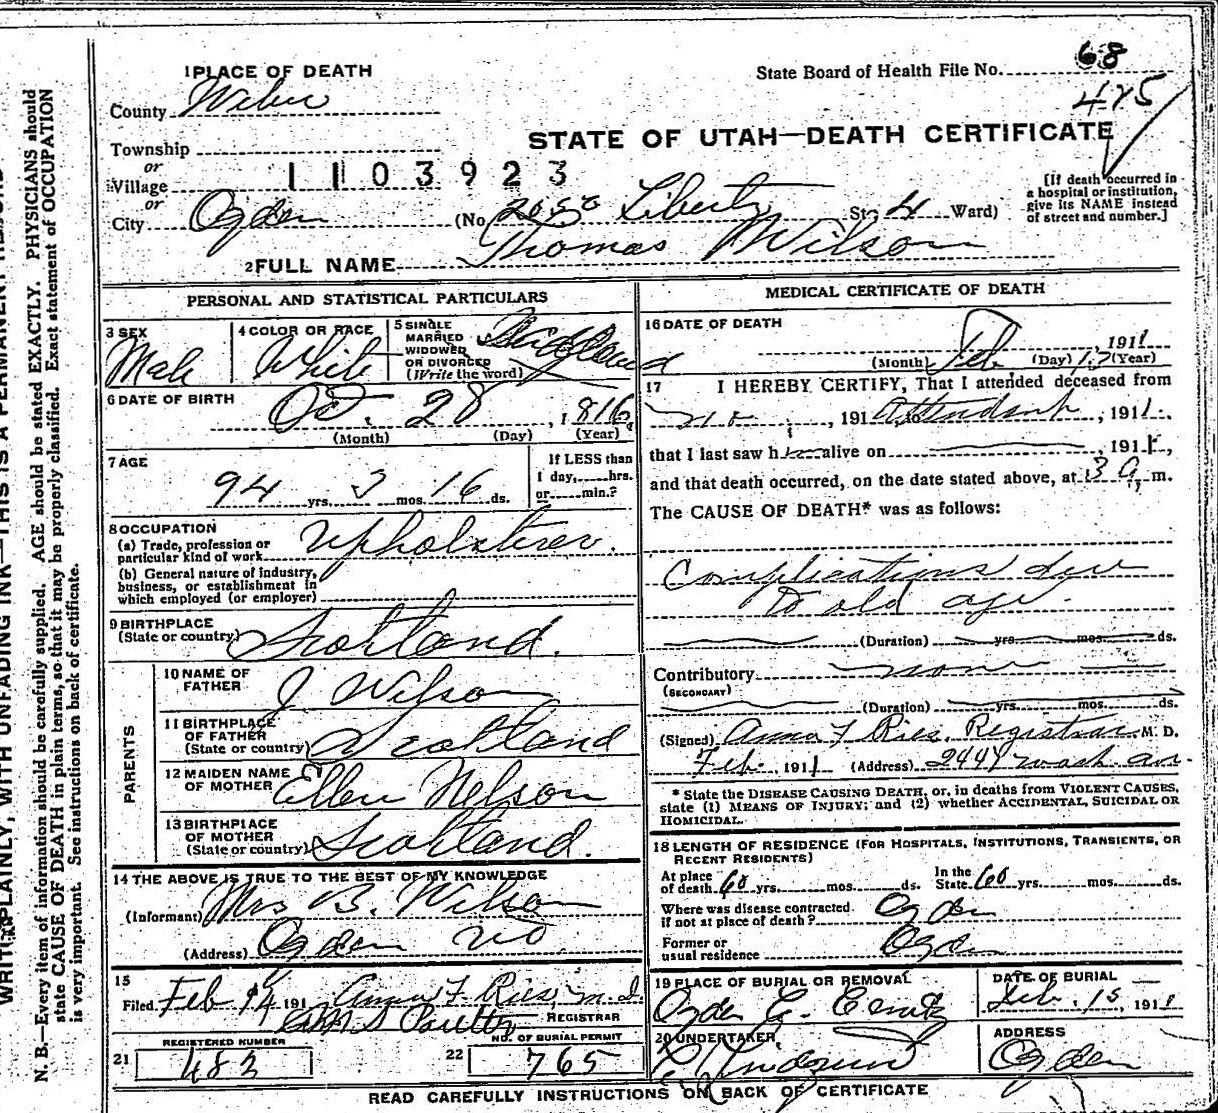 68
1 PLACE OF DEATH
State Board of Health File No.
County Weber
475
STATE OF UTAH—DEATH CERTIFICATE
Township
or
Village
1103923
or
City Ogden (No. 2050 Liberty St; 4 Ward)
[If death occurred in a hospital or institution, give its NAME instead of street and number.]
2 FULL NAME Thomas Wilson
PERSONAL AND STATISTICAL PARTICULARS
3 SEX Male
4 COLOR OR RACE White
5 SINGLE MARRIED WIDOWED OR DIVORCED (Write the word)
6 DATE OF BIRTH Oct. 28, 1816
(Month) (Day) (Year)
7 AGE 94 yrs. 3 mos. 16 ds.
If LESS than 1 day,......hrs. or......min.?
8 OCCUPATION
(a) Trade, profession or particular kind of work Upholsterer.
(b) General nature of industry, business, or establishment in which employed (or employer)
9 BIRTHPLACE (State or country) Scotland.
PARENTS
10 NAME OF FATHER J Wilson
11 BIRTHPLACE OF FATHER (State or country) Scotland
12 MAIDEN NAME OF MOTHER Ellen Nelson
13 BIRTHPLACE OF MOTHER (State or country) Scotland.
14 THE ABOVE IS TRUE TO THE BEST OF MY KNOWLEDGE
(Informant) Mrs B. Wilson
(Address) Ogden
15
Filed Feb 14 191 Anna F. Ries, M.D.
REGISTRAR
REGISTERED NUMBER
21 483
NO. OF BURIAL PERMIT
22 765
MEDICAL CERTIFICATE OF DEATH
16 DATE OF DEATH
Feb 13, 1911
(Month) (Day) (Year)
17 I HEREBY CERTIFY, That I attended deceased from
no, 191 to Attendant, 1911,
that I last saw h alive on, 191,
and that death occurred, on the date stated above, at 3 a, m.
The CAUSE OF DEATH* was as follows:
Complications due
to old age.
(Duration) yrs. mos. ds.
Contributory none
(SECONDARY)
(Duration) yrs. mos. ds.
(Signed) Anna F Ries. Registrar M. D.
Feb., 1911 (Address) 2444 Wash. av.
* State the DISEASE CAUSING DEATH, or, in deaths from VIOLENT CAUSES, state (1) MEANS OF INJURY; and (2) whether ACCIDENTAL, SUICIDAL OR HOMICIDAL.
18 LENGTH OF RESIDENCE (FOR HOSPITALS, INSTITUTIONS, TRANSIENTS, OR RECENT RESIDENTS)
At place of death 60 yrs. mos. ds. In the State 60 yrs. mos. ds.
Where was disease contracted. if not at place of death? Ogden
Former or usual residence Ogden
19 PLACE OF BURIAL OR REMOVAL
Ogden C.
DATE OF BURIAL
Feb. 15, 1911
20 UNDERTAKER
ADDRESS
Ogden
READ CAREFULLY INSTRUCTIONS ON BACK OF CERTIFICATE
WRITE PLAINLY, WITH UNFADING INK—THIS IS A PERMANENT RECORD
N. B.—Every item of information should be carefully supplied. AGE should be stated EXACTLY. PHYSICIANS should
state CAUSE OF DEATH in plain terms, so that it may be properly classified. Exact statement of OCCUPATION
is very important. See instructions on back of certificate.